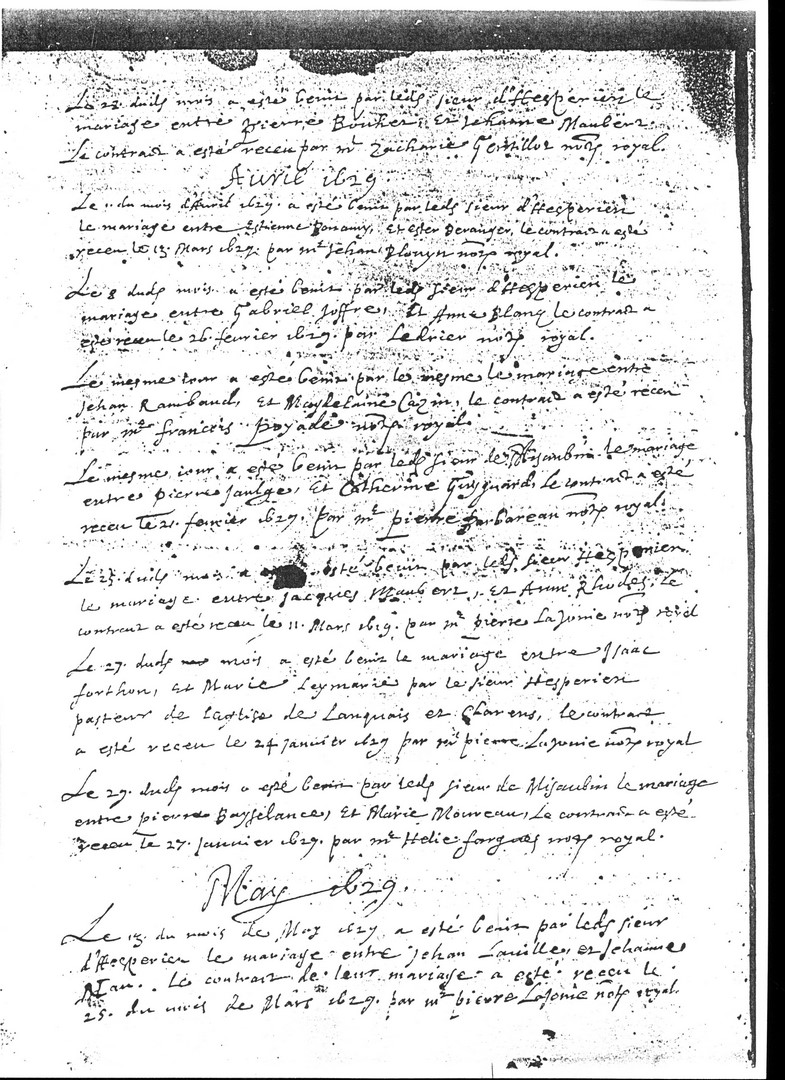 Le 28 dudt mois a esté benit par ledt sieur d'Hesperien le
mariage entre Pierre Bouker, et Jehanne Maubert.
Le contract a esté receu par me Zacharie Gentillot note royal.
Avril 1629.
Le du mois d'Avril 1629. a esté benit par ledt sieur d'Hesperien
le mariage entre Estienne Bonamy, et Ester Beranger, le contract a esté
receu le 13 Mars 1629. par me Jehan Plouyn note royal.
Le 8 dudt mois a esté benit par ledt sieur d'Hesperien le
mariage entre Gabriel Joffre, et Anne Blanq le contract a
esté receu le 26 fevrier 1629. par Ledrier note royal.
Le mesme iour a esté benit par le mesme le mariage entre
Jehan Rambaud, et Magdelaine Cazin, le contract a esté receu
par me Francois Boyade note royal.
Le mesme iour a esté benit par ledt sieur de Misaubin le mariage
entre Pierre Jaulge, et Catherine le contract a esté
receu le 21 fevrier 1629. par me Pierre Barbareau note royal.
Le 25 dudt mois a esté benit par ledt sieur Hesperien
le mariage entre Jacques Maubert, et Anne Rhodes. Le
contract a esté receu le 11. Mars 1629. par me Pierre LaJonie note royal
Le 27. dudt mois a esté benit le mariage entre Isaac
forthon, et Marie Leymarie par le sieur Hesperien
pasteur de l'eglise de Lanquais et Clarens, le contract
a esté receu le 24 janvier 1629 par me pierre LaJonie note royal
Le 29. dudt mois a esté benit par ledt sieur de Misaubin le mariage
entre pierre Baysselance, et Marie Moureau, Le contract a esté
receu le 27. Janvier 1629. par me Helie forgues note royal.
May 1629.
Le 13. du mois de May 1629 a esté benit par ledt sieur
d'Hesperien le mariage entre Jehan Laville, et Jehanne
. Le contract de leur mariage a esté receu le
25. du mois de Mars 1629. par me pierre LaJonie note royal.